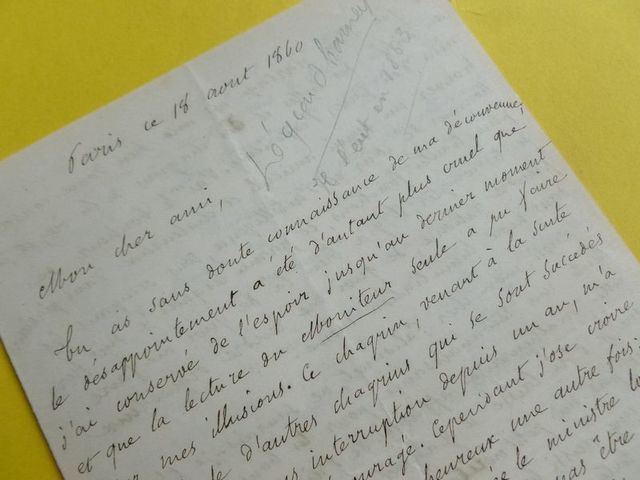 Paris ce 18 aout 1860
Légion d'honneur
il l'eut en 1863
Mon cher ami,
Tu as sans doute connaissance de ma déconvenue,
le désappointement a été d'autant plus cruel que
j'ai conservé de l'espoir jusqu'au dernier moment
et que la lecture du Moniteur seule a pu faire
mes illusions. Ce chagrin, venant à la suite
d'autres chagrins qui se sont succédés
interruption depuis un an, m'a
Cependant j'ose croire
heureux une autre fois:
le ministre
pas être